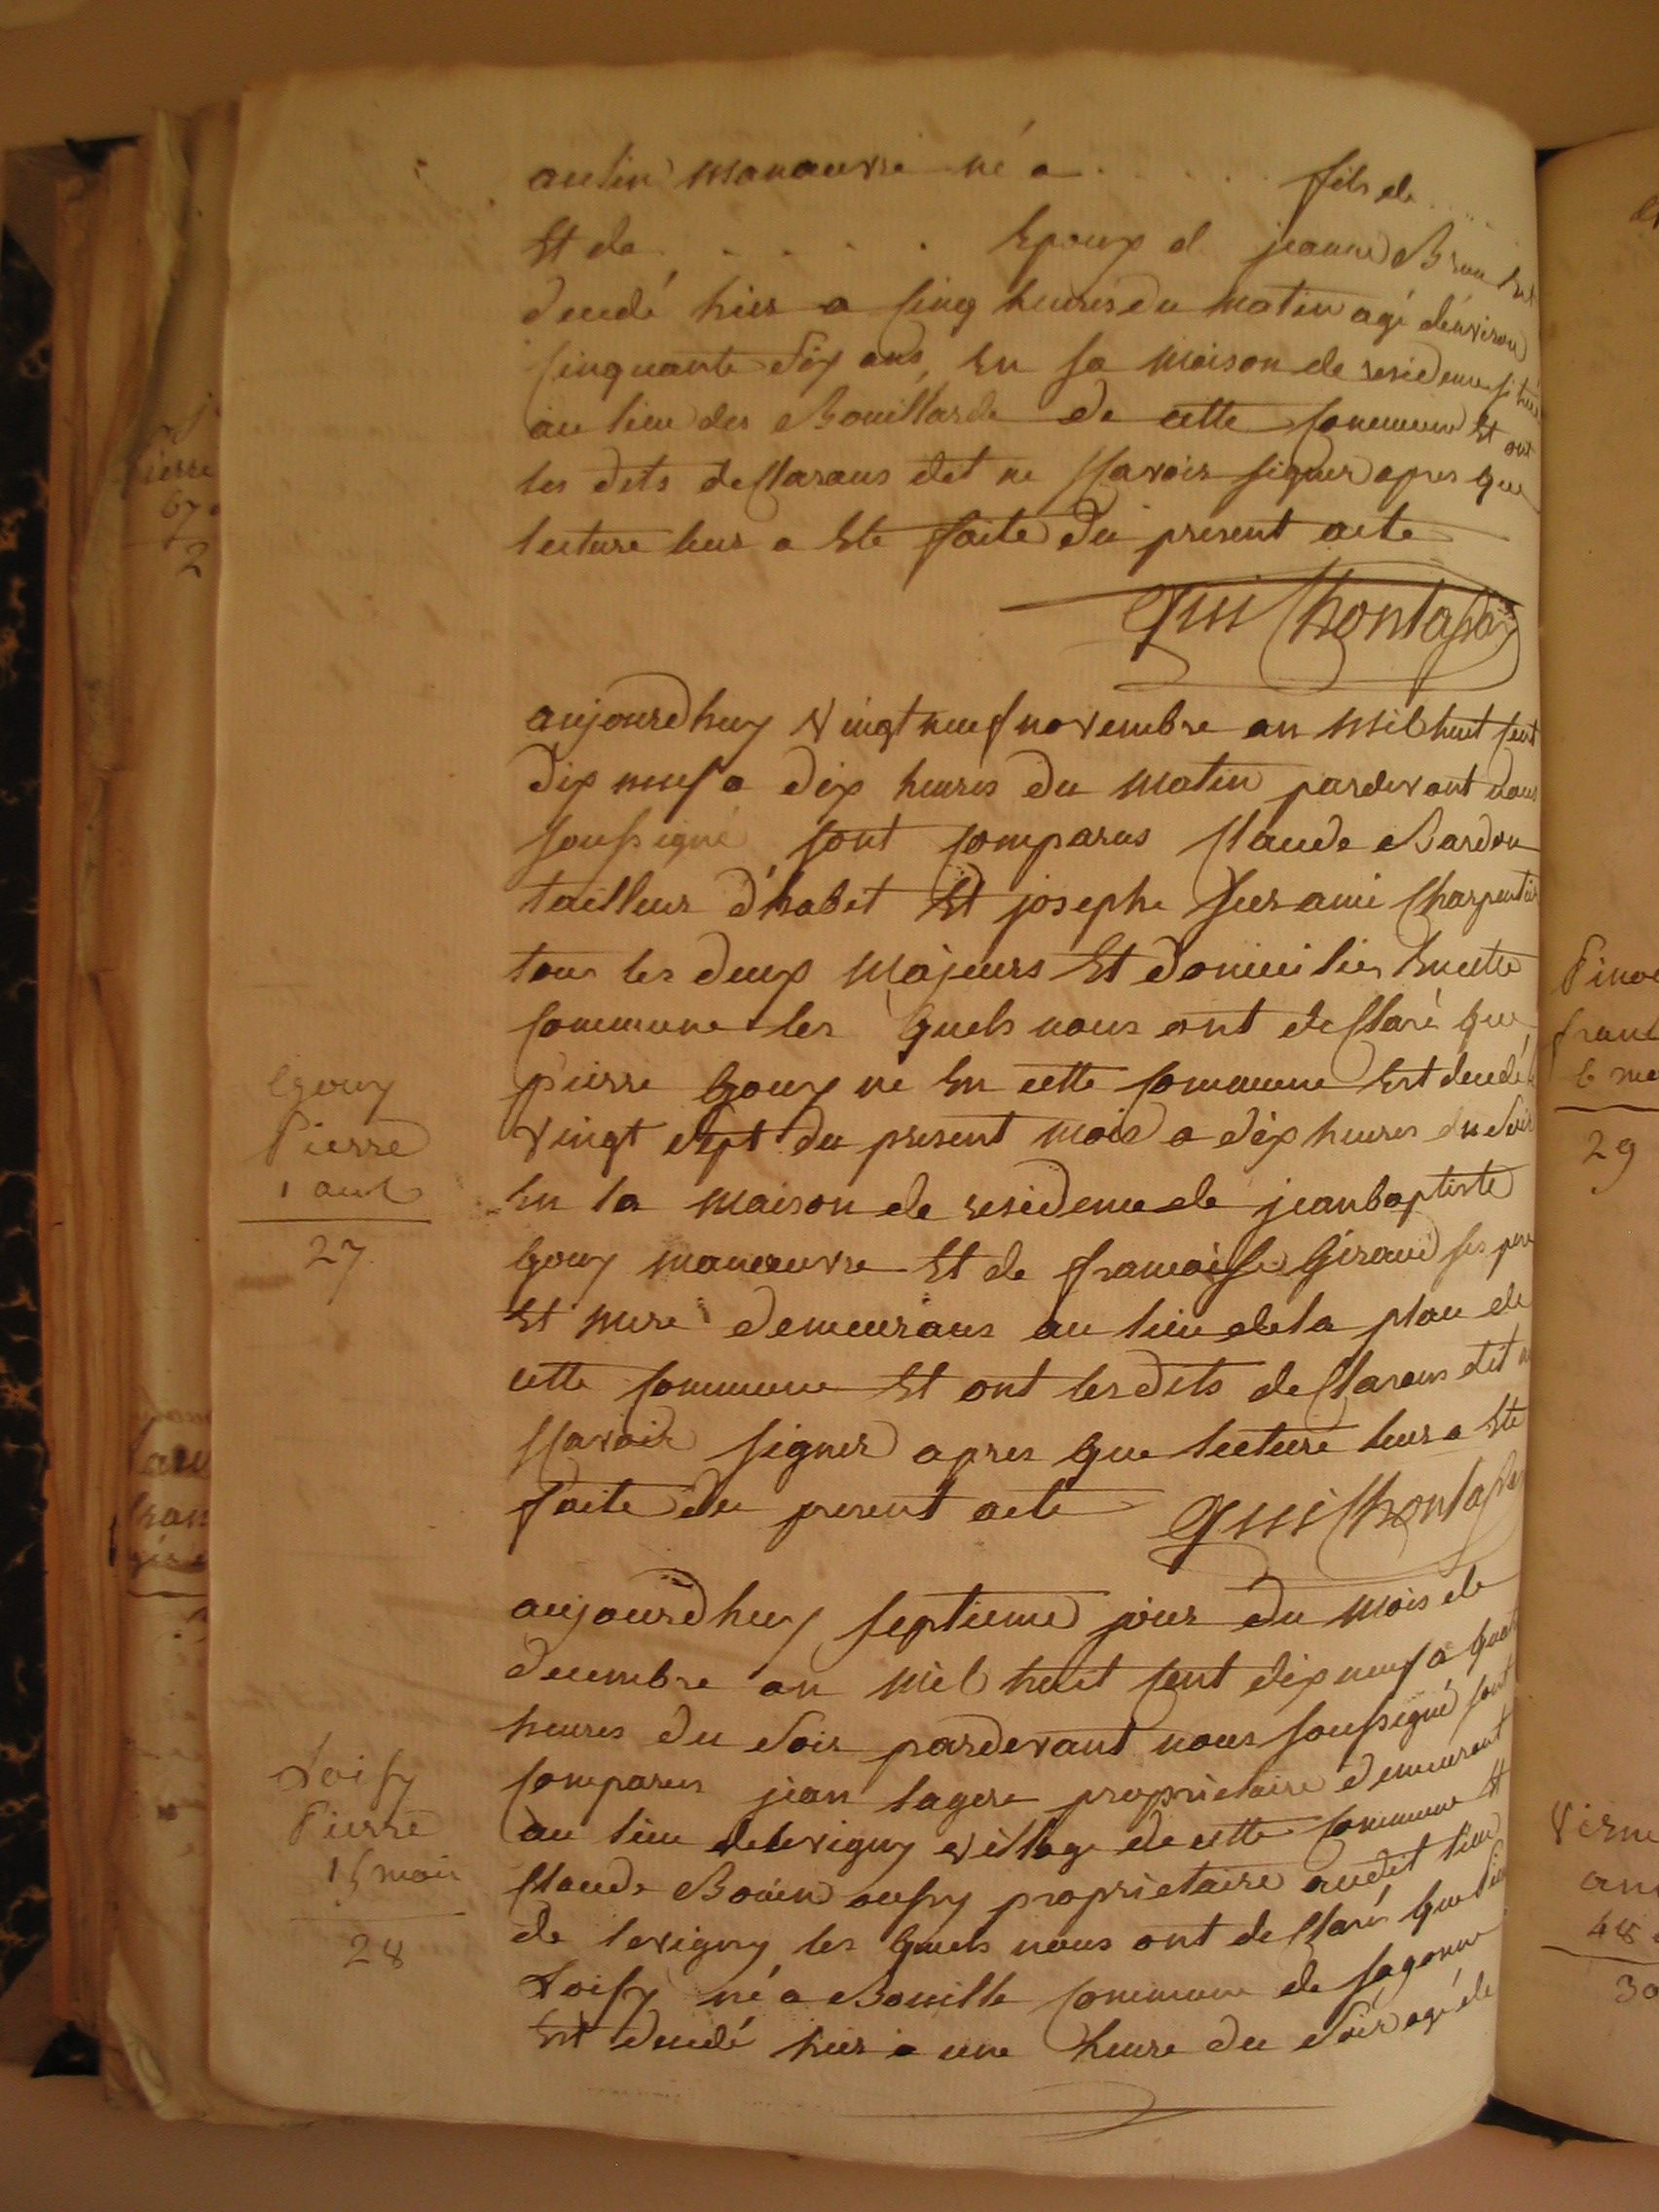 manœuvre né a . . . . . fils de . . . .
Et de . . . . . Epoux d jeanne Brun Est
decedé hier a sinq heures du matin agé d'environ
sinquante dix ans, En sa maison de residence située
au lieu des Bouillards de cette commune Et ont
les dits declarans dit ne scavoir signer apres que
lecture leur a Ete faite du present acte
aujourd huy vingt neuf novembre an mil huit sent
dix neuf a dix heures du matin pardevant nous
soussigné sont comparus claude Bardon
tailleur d'habit Et josephe charpentier
tous les deux majeurs Et domiciliés En cette
commune les quels nous ont declaré que
pierre Gouy né En cette commune Est decedé le
vingt sept du present mois a dix heures du soir
En la maison de residence de jean baptiste
Gouy manœuvre Et de francoisse Giraud ses pere
Et mere demeurans au lieu de la place de
cette commune Et ont les dits declarans dit ne
scavoir signer apres que lecture leur a Ete
faite du present acte
Gouy
Pierre
1 an
27
aujourd huy septieme jour du mois de
decembre an mil huit sent dix neuf a quatre
heures du soir pardevant nous soussigné sont
comparus jean lagere proprietaire demeurant
au lieu de levigny village de cette commune Et
claude proprietaire audit lieu
de levigny les quels nous ont declarés que Pierre
Loisy né a Bouille commune de sagonne
Est decedé hier a une heure du soir agé de
Loisy
Pierre
15 mois
28
Pierre
67
2
29
48
30